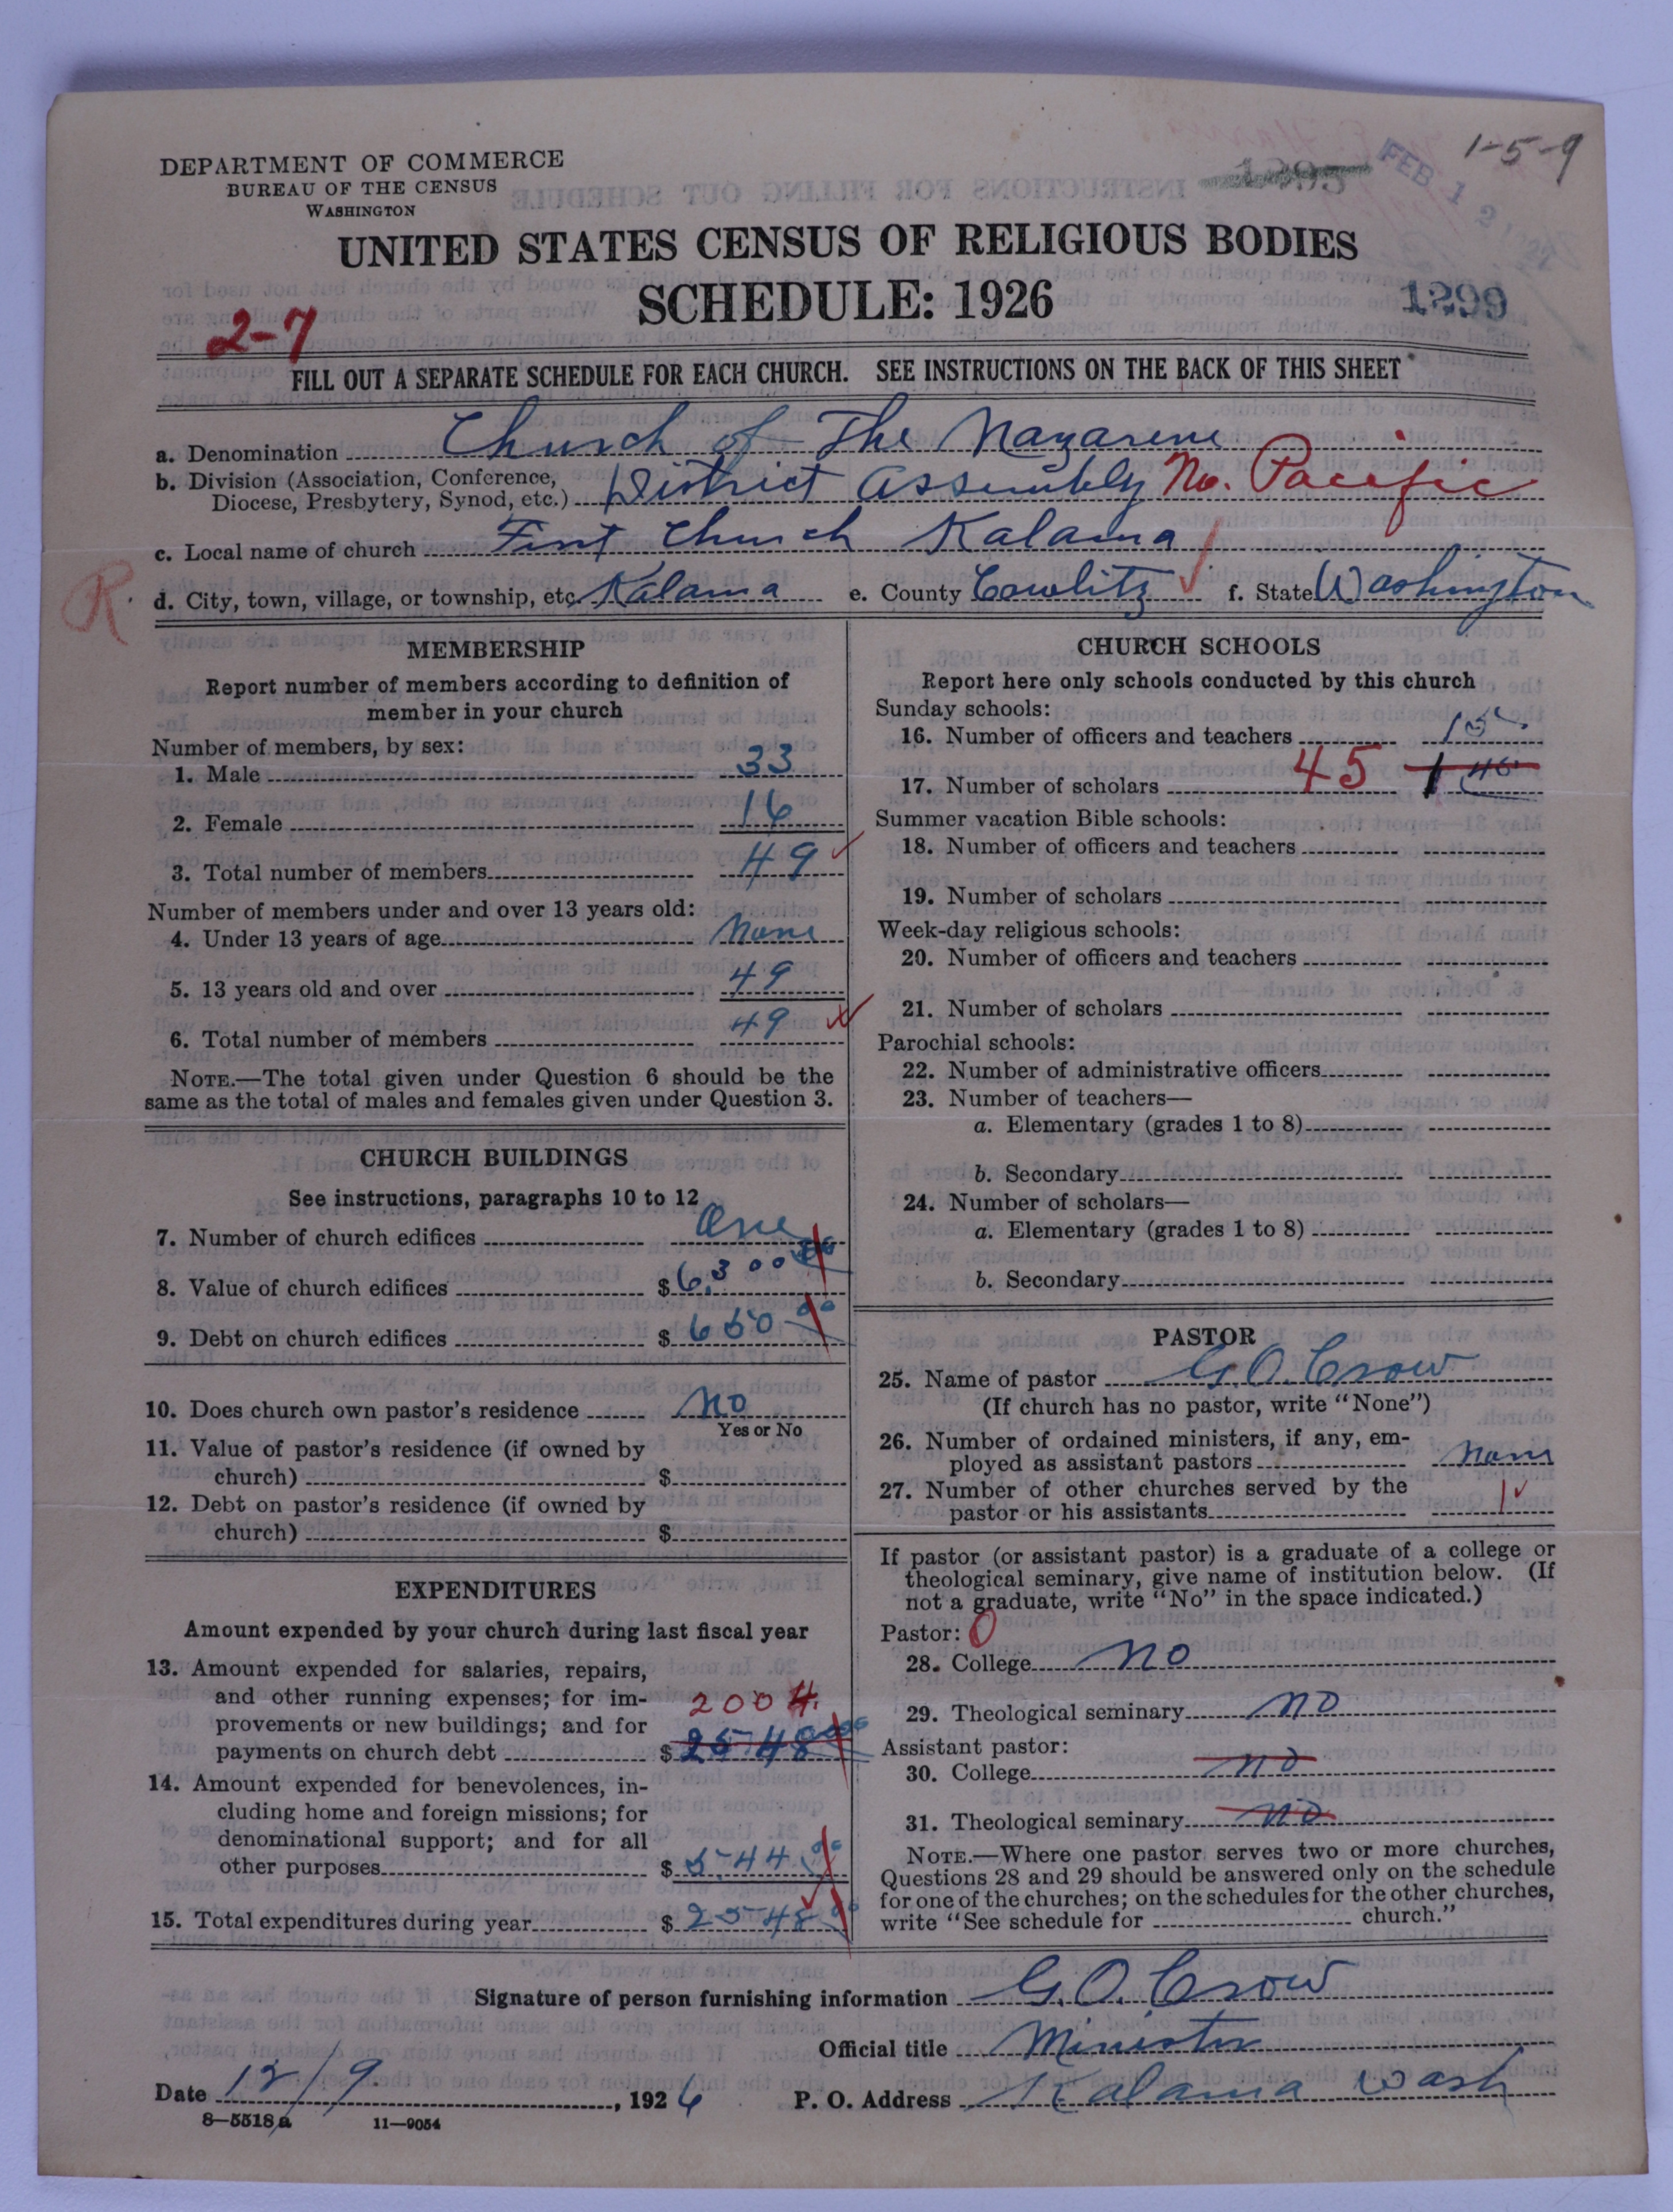 1-5-9
1295
FEB 1 2 1927
DEPARTMENT OF COMMERCE
BUREAU OF THE CENSUS
WASHINGTON
UNITED STATES CENSUS OF RELIGIOUS BODIES
SCHEDULE: 1926
1299
2-7
FILL OUT A SEPARATE SCHEDULE FOR EACH CHURCH. SEE INSTRUCTIONS ON THE BACK OF THIS SHEET
a. Denomination Church of The Nazarene
b. Division (Association, Conference,
Diocese, Presbytery, Synod, etc.) District Assembly No. Pacific
c. Local name of church First Church Kalama
R
d. City, town, village, or township, etc. Kalama e. County Cowlitz f. State Washington
MEMBERSHIP
Report number of members according to definition of
member in your church
Number of members, by sex:
1. Male 33
2. Female 16
3. Total number of members 49
Number of members under and over 13 years old:
4. Under 13 years of age None
5. 13 years old and over 49
6. Total number of members 49
NOTE.—The total given under Question 6 should be the
same as the total of males and females given under Question 3.
CHURCH BUILDINGS
See instructions, paragraphs 10 to 12
7. Number of church edifices One
8. Value of church edifices $ 6,300 00
9. Debt on church edifices $ 650 00
10. Does church own pastor's residence No
Yes or No
11. Value of pastor's residence (if owned by
church) $
12. Debt on pastor's residence (if owned by
church) $
EXPENDITURES
Amount expended by your church during last fiscal year
13. Amount expended for salaries, repairs,
and other running expenses; for im-
provements or new buildings; and for
payments on church debt $ 2548 00
2004.
14. Amount expended for benevolences, in-
cluding home and foreign missions; for
denominational support; and for all
other purposes $ 544.00
15. Total expenditures during year $ 2548 00
CHURCH SCHOOLS
Report here only schools conducted by this church
Sunday schools:
16. Number of officers and teachers 15
17. Number of scholars 45
Summer vacation Bible schools:
18. Number of officers and teachers
19. Number of scholars
Week-day religious schools:
20. Number of officers and teachers
21. Number of scholars
Parochial schools:
22. Number of administrative officers
23. Number of teachers—
a. Elementary (grades 1 to 8)
b. Secondary
24. Number of scholars—
a. Elementary (grades 1 to 8)
b. Secondary
PASTOR
25. Name of pastor G. O. Crow
(If church has no pastor, write "None")
26. Number of ordained ministers, if any, em-
ployed as assistant pastors None
27. Number of other churches served by the
pastor or his assistants 1
If pastor (or assistant pastor) is a graduate of a college or
theological seminary, give name of institution below. (If
not a graduate, write "No" in the space indicated.)
Pastor: 0
28. College No
29. Theological seminary No
Assistant pastor:
30. College No
31. Theological seminary No
NOTE.—Where one pastor serves two or more churches,
Questions 28 and 29 should be answered only on the schedule
for one of the churches; on the schedules for the other churches,
write "See schedule for church."
Signature of person furnishing information G. O. Crow
Official title Minister
Date 12/9. , 1926 P. O. Address Kalama Wash
8-5518a 11-9054